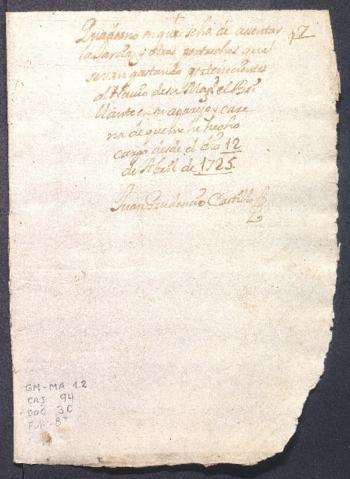 Quaderno en que se ha de asentar
la y otros pertrechos que
se van gastando pertenecientes
al Navio de su Mag.d el Bri
llante en su aparejo y care
na de que me he hecho
cargo desde el dia 12
de Abril de 1725.
Juan Prudencio Castillo
GM-MA 1.2
CAJ 94
DOC 30